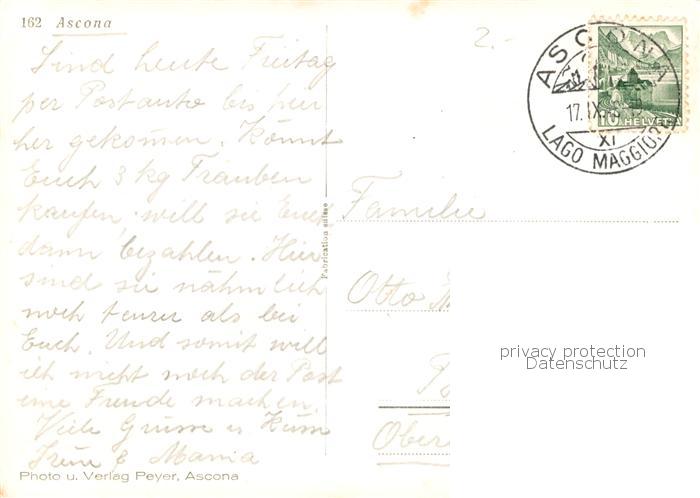 162 Ascona
2.-
ASCONA
17.IX
XI
LAGO MAGGIORE
10 HELVETIA
Sind heute Freitag
per Postauto bis hier
her gekommen. Könnt
Euch 3 kg Trauben
kaufen will sie Euch
dann bezahlen. Hier
sind sie nähmlich
noch teurer als bei
Euch. Und somit will
ich nicht noch der Post
eine Freude machen.
Viele Grüsse u. Küsse
Irene & Mama
Fabrication suisse
Familie
Otto
Ober
privacy protection
Datenschutz
Photo u. Verlag Peyer, Ascona